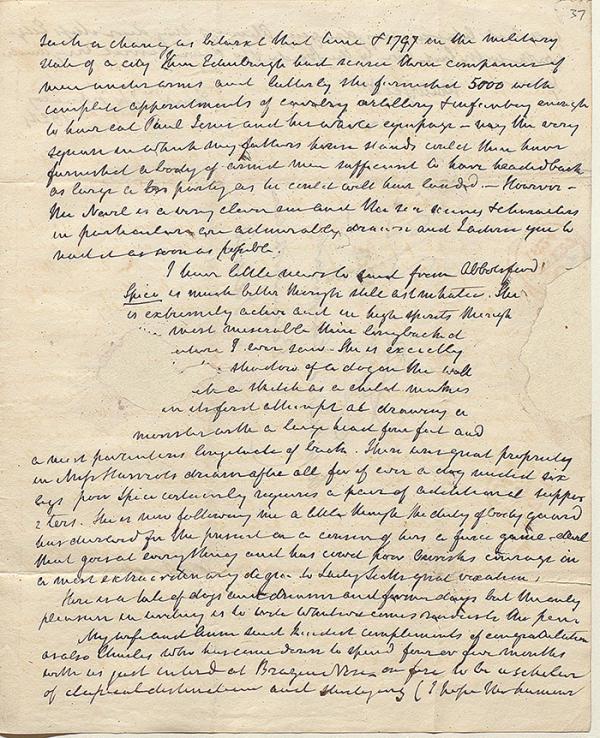 37
such a change as betwixt that time & 1797 in the military
state of a city. Then Edinburgh had scarce three companies of
men under arms and latterly she furnished 5000 with
complete appointments of cavalry artillery & infantry enough
to have eat Paul Jones and his whole equipage – nay the very
square in which my fathers house stands could then have
furnished a body of armd men sufficient to have headed back
as large a party as he could well have landed. – However –
the Novel is a very clever one and the sea scenes & characters
in particular are admirably drawn and I advise you to
read it as soon as possible.
I have little news to send from Abbotsford.
Spice is much better though still asthmatic. She
is extremely active and in high spirits though
most miserable thin longbacked
I ever saw. She is exactly
shadow of a dog on the wall
a sketch as a child makes
in its first attempt at drawing a
monster with a large head four feet and
a most portentous longitude of back. There was great propriety
in Miss dream after all for if ever a dog needed six
legs poor Spice certainly requires a pair of additional suppor
ters. She is now following me a little though the duty of body guard
has devolved for the present on a cousin of hers a fierce game devil
that goes at everything and has cowd poor courage in
a most extraordinary degree to Lady Scotts great vexation.
Here is a tale of dogs and dreams and former days but the only
pleasure in writing is to write whatever comes readiest to the pen
My wife and Anne send kindest compliments of congratulation
as also Charles who has come down to spend four or five months
with us just enterd at Brazen Nose on fire to be a scholar
of classical distinction and studying (I hope the humour